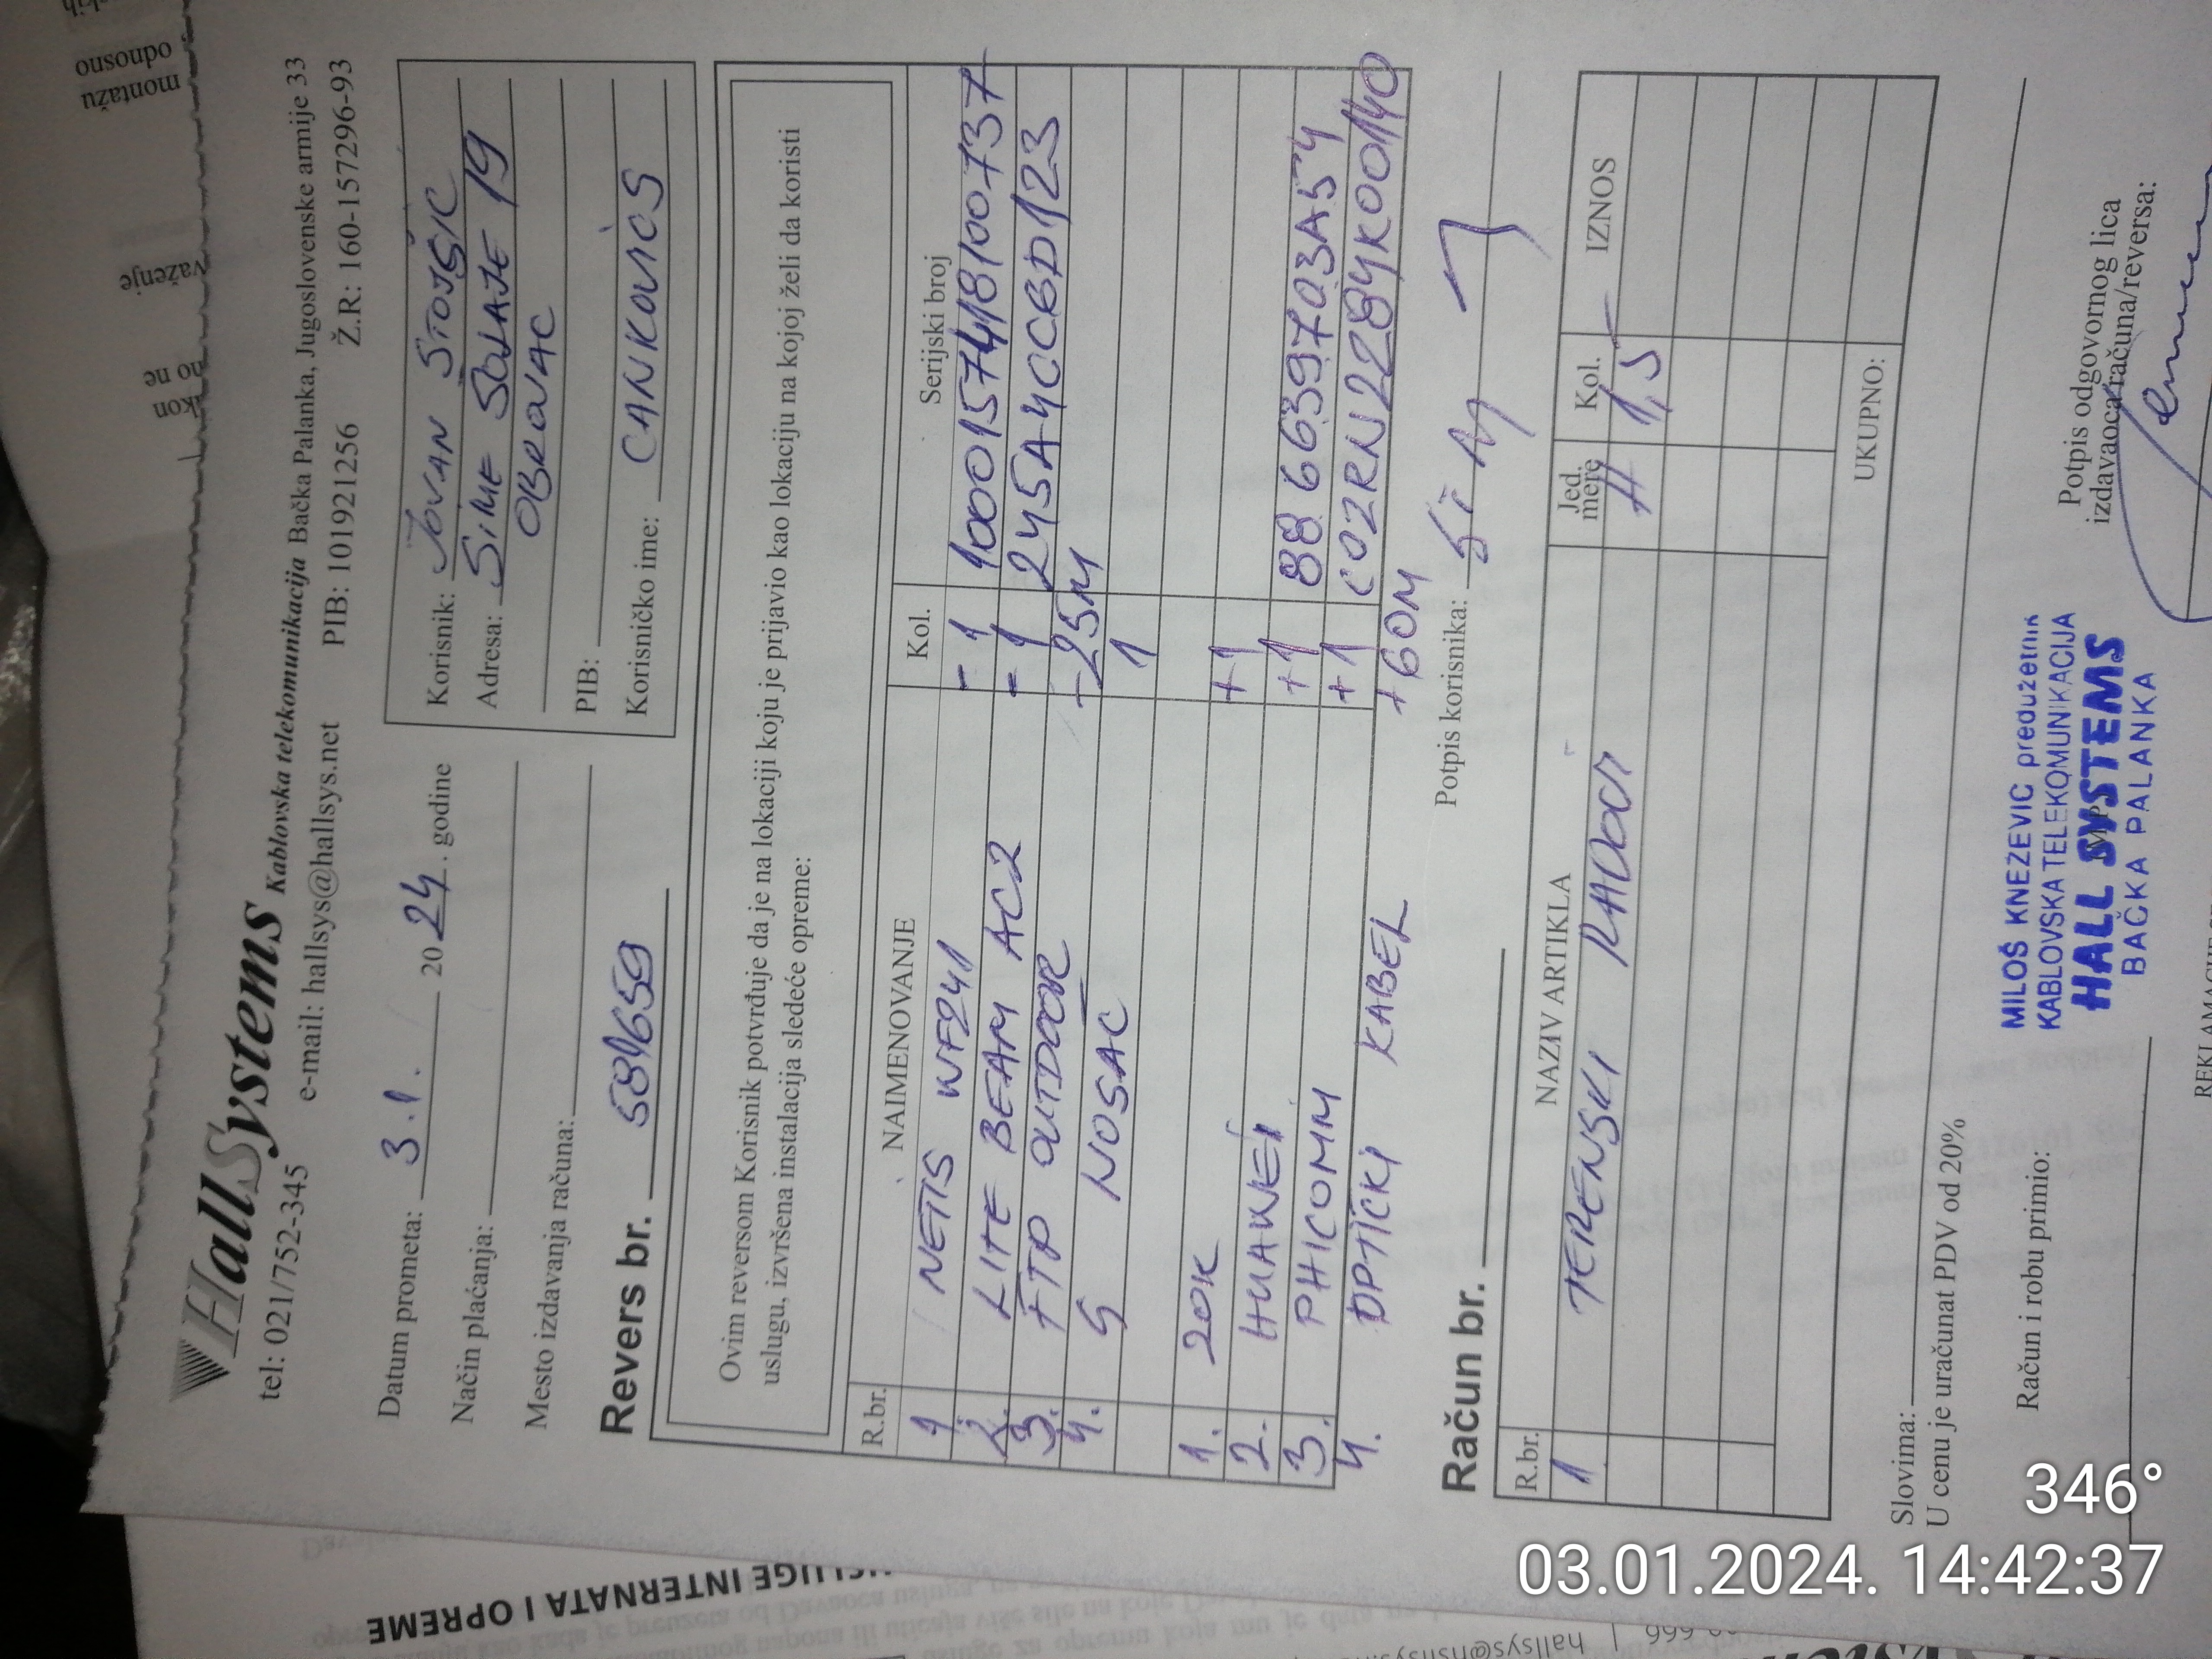 HallSystems Kablovska telekomunikacija Bačka Palanka, Jugoslovenske armije 33
tel: 021/752-345 e-mail: hallsys@hallsys.net PIB: 101921256 Ž.R: 160-157296-93
Datum prometa: 3.1. 2024. godine
Način plaćanja:
Mesto izdavanja računa:
Korisnik: JOVAN STOJŠIĆ
Adresa: SIME ŠOLAJE 19
OBROVAC
PIB:
Korisničko ime: CANKOVICS
Revers br. 584659
Ovim reversom Korisnik potvrđuje da je na lokaciji koju je prijavio kao lokaciju na kojoj želi da koristi
uslugu, izvršena instalacija sledeće opreme:
R.br. NAIMENOVANJE Kol. Serijski broj
1 NETIS WF2411 -1 1000157418100737
2. LITE BEAM AC2 -1 245A4CC6D123
3. FTP OUTDOOR -25M
4. G NOSAČ 1
1. 20K +1
2. HUAWEI +1 88 6639703A54
3. PHICOMM +1 C0ZRN2284K00140
4. OPTIČKI KABEL +60M
Potpis korisnika:
Račun br.
R.br. NAZIV ARTIKLA Jed. mere Kol. IZNOS
1 TERENSKI RADOVI H 1,5
UKUPNO:
Slovima:
U cenu je uračunat PDV od 20%
Račun i robu primio:
MILOŠ KNEZEVIC preduzetnik
KABLOVSKA TELEKOMUNIKACIJA
HALL SYSTEMS
BAČKA PALANKA
Potpis odgovornog lica
izdavaoca računa/reversa:
montažu
odnosno
važenje
no ne
USLUGE INTERNATA I OPREME
346°
03.01.2024. 14:42:37